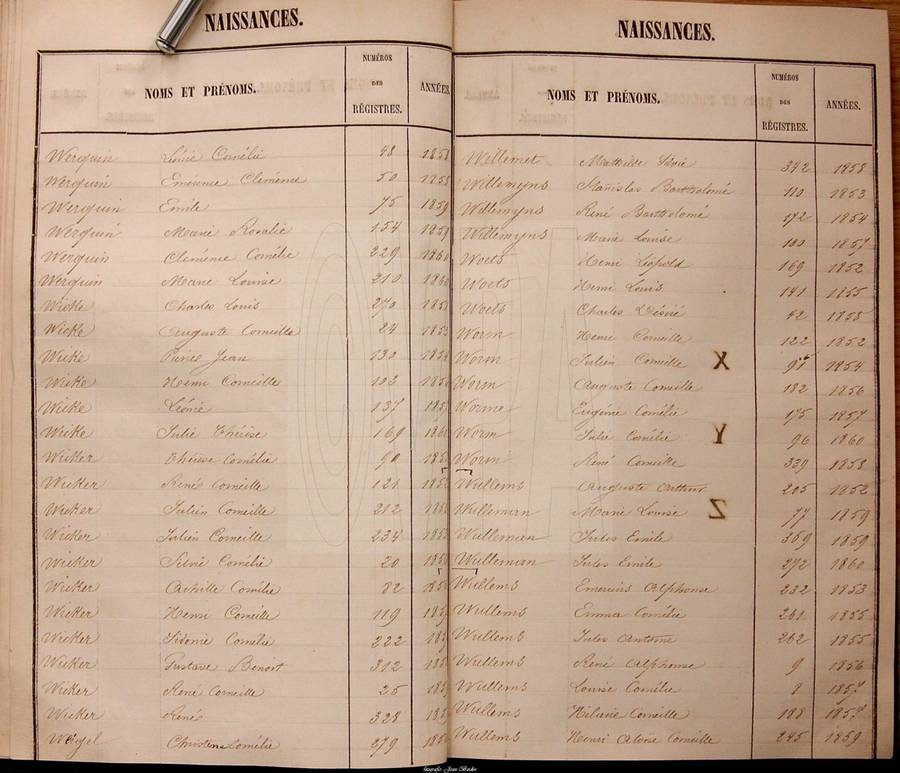 NAISSANCES.
NOMS ET PRÉNOMS. NUMÉROS DES RÉGISTRES. ANNÉES.
Werquin Comélie 48
Werquin Emérence Clémence 50
Werquin Emile 75 1859
Werquin Marie Rosalie 154
Werquin Clémence Comélie 229 1860
Werquin Marie Louise 210 1860
Wicke Charles Louis 270
Wicke Auguste Corneille 24
Wicke Jean 130
Wicke Henri Corneille 103
Wicke Léonie 137
Wicke Julie Thérèse 169 1860
Wicker Thérèse Comélie 90
Wicker René Corneille 121
Wicker Julien Corneille 212
Wicker Julien Corneille 234
Wicker Silvie Comélie 20
Wicker Achille Comélie 82
Wicker Henri Corneille 119
Wicker Sidonie Comélie 222
Wicker Gustave Benoit 312
Wicker René Corneille 25
Wicker René 328
Christine Comélie 279
NAISSANCES.
NOMS ET PRÉNOMS. NUMÉROS DES RÉGISTRES. ANNÉES.
Willemet Mathilde 342 1858
Willemyns Stanislas Bartholomé 110 1853
Willemyns René Bartholomé 172 1854
Willemyns Marie Louise 100 1857
Woets Henri Léopold 169 1852
Woets Henri Louis 141 1855
Woets Charles Désiré 42 1855
Worm Henri Corneille 122 1852
Worm Julien Corneille X 1854
Worm Auguste Corneille 182 1856
Worme Eugénie Comélie 175 1857
Worm Julie Comélie Y 96 1860
Worm René Corneille 339 1858
Wullems Auguste Arthur 205 1852
Wulleman Marie Louise Z 77 1859
Wulleman Jules Emile 369 1859
Wulleman Jules Emile 272 1860
Wullems Alphonse 232 1853
Wullems Emma Comélie 261 1855
Wullems Jules Antoine 262 1855
Wullems René Alphonse 9 1856
Wullems Louise Comélie 1857
Wullems Hilaire Corneille 188 1857
Wullems Henri Aloise Corneille 245 1859